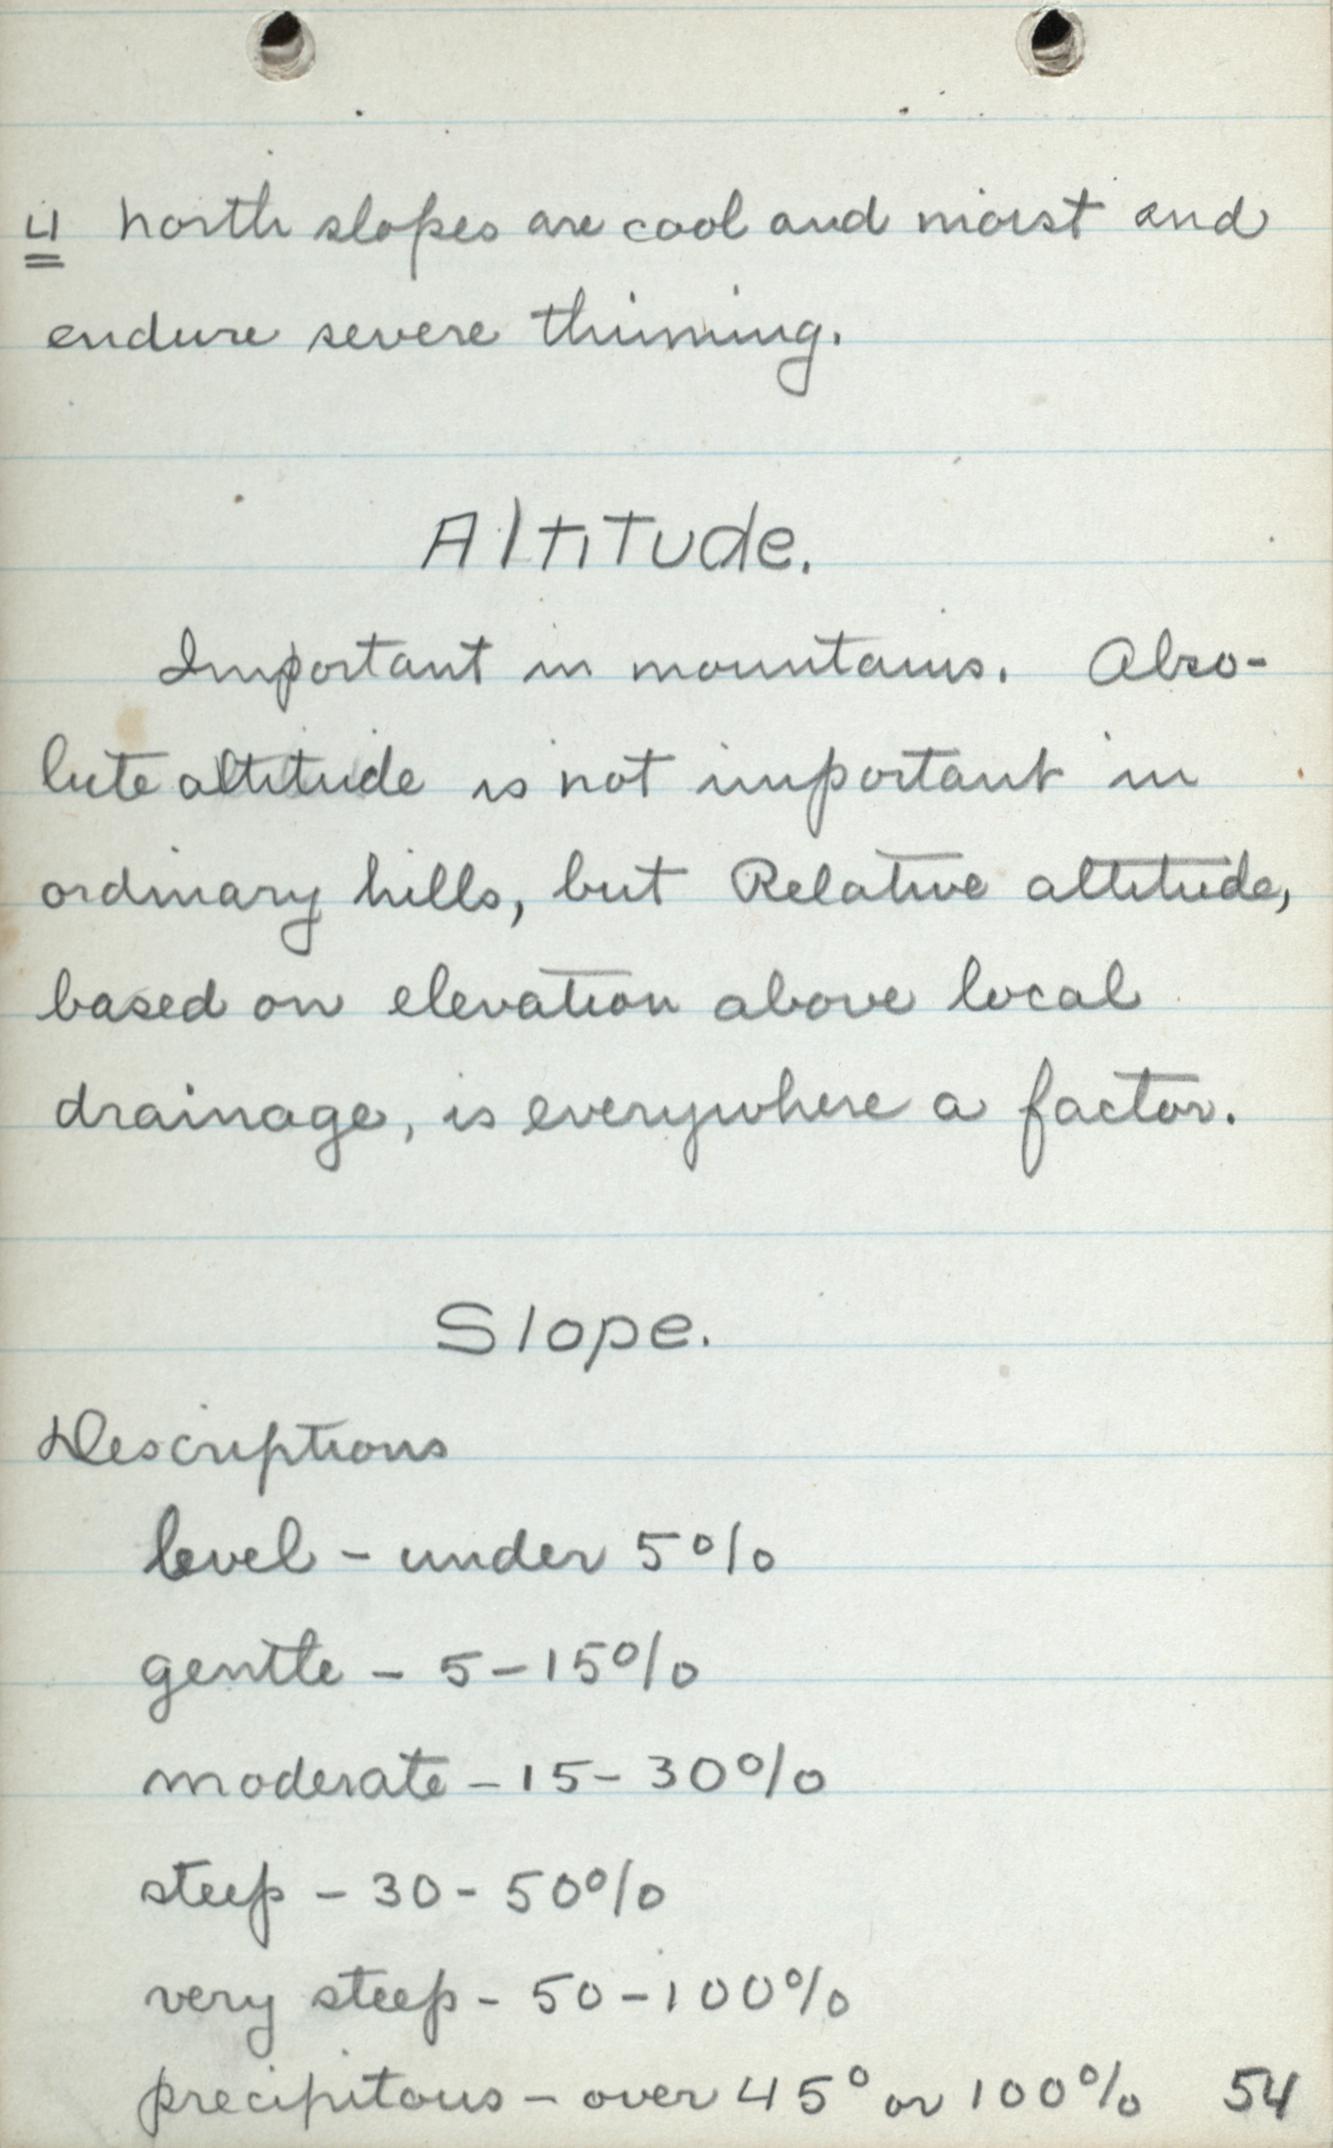 4 north slopes are cool and moist and
endure severe thinning.
Altitude.
Important in mountains. Abso-
lute altitude is not important in
ordinary hills, but Relative altitude,
based on elevation above local
drainage, is everywhere a factor.
Slope.
Descriptions
level - under 5%
gentle - 5-15%
moderate - 15-30%
steep - 30-50%
very steep - 50-100%
precipitous - over 45° or 100% 54